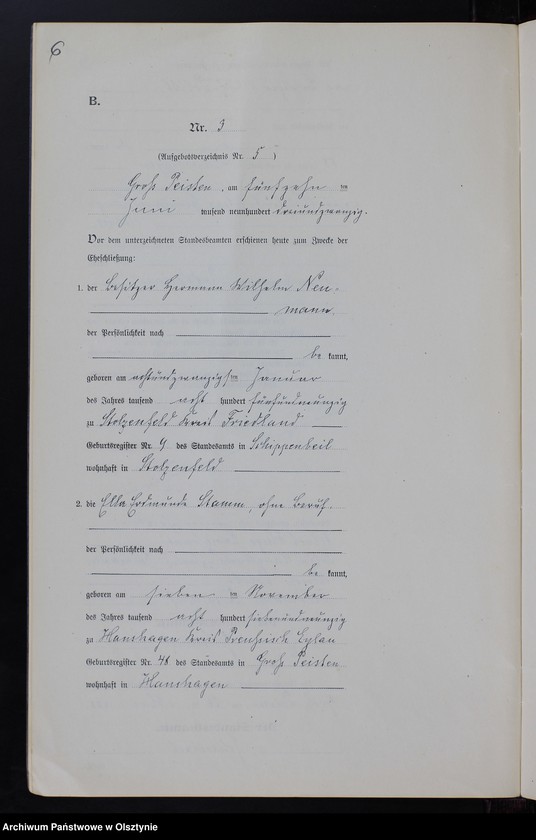 6
B.
Nr. 3
(Aufgebotsverzeichnis Nr. 5)
Groß Peisten, am fünfzehnten
Juni tausend neunhundert dreiundzwanzig.
Vor dem unterzeichneten Standesbeamten erschienen heute zum Zwecke der
Eheschließung:
1. der Besitzer Hermann Wilhelm Neu-
mann
der Persönlichkeit nach
be kannt,
geboren am achtundzwanzigsten Januar
des Jahres tausend acht hundert fünfundneunzig
zu Stolzenfeld Kreis Friedland
Geburtsregister Nr. 9 des Standesamts in Schippenbeil
wohnhaft in Stolzenfeld
2. die Ella Erdmunde Stamm, ohne Beruf.
der Persönlichkeit nach
be kannt,
geboren am siebenten November
des Jahres tausend acht hundert siebenundneunzig
zu Hanshagen Kreis Preußisch Eylau
Geburtsregister Nr. 48 des Standesamts in Groß Peisten
wohnhaft in Hanshagen
Archiwum Państwowe w Olsztynie